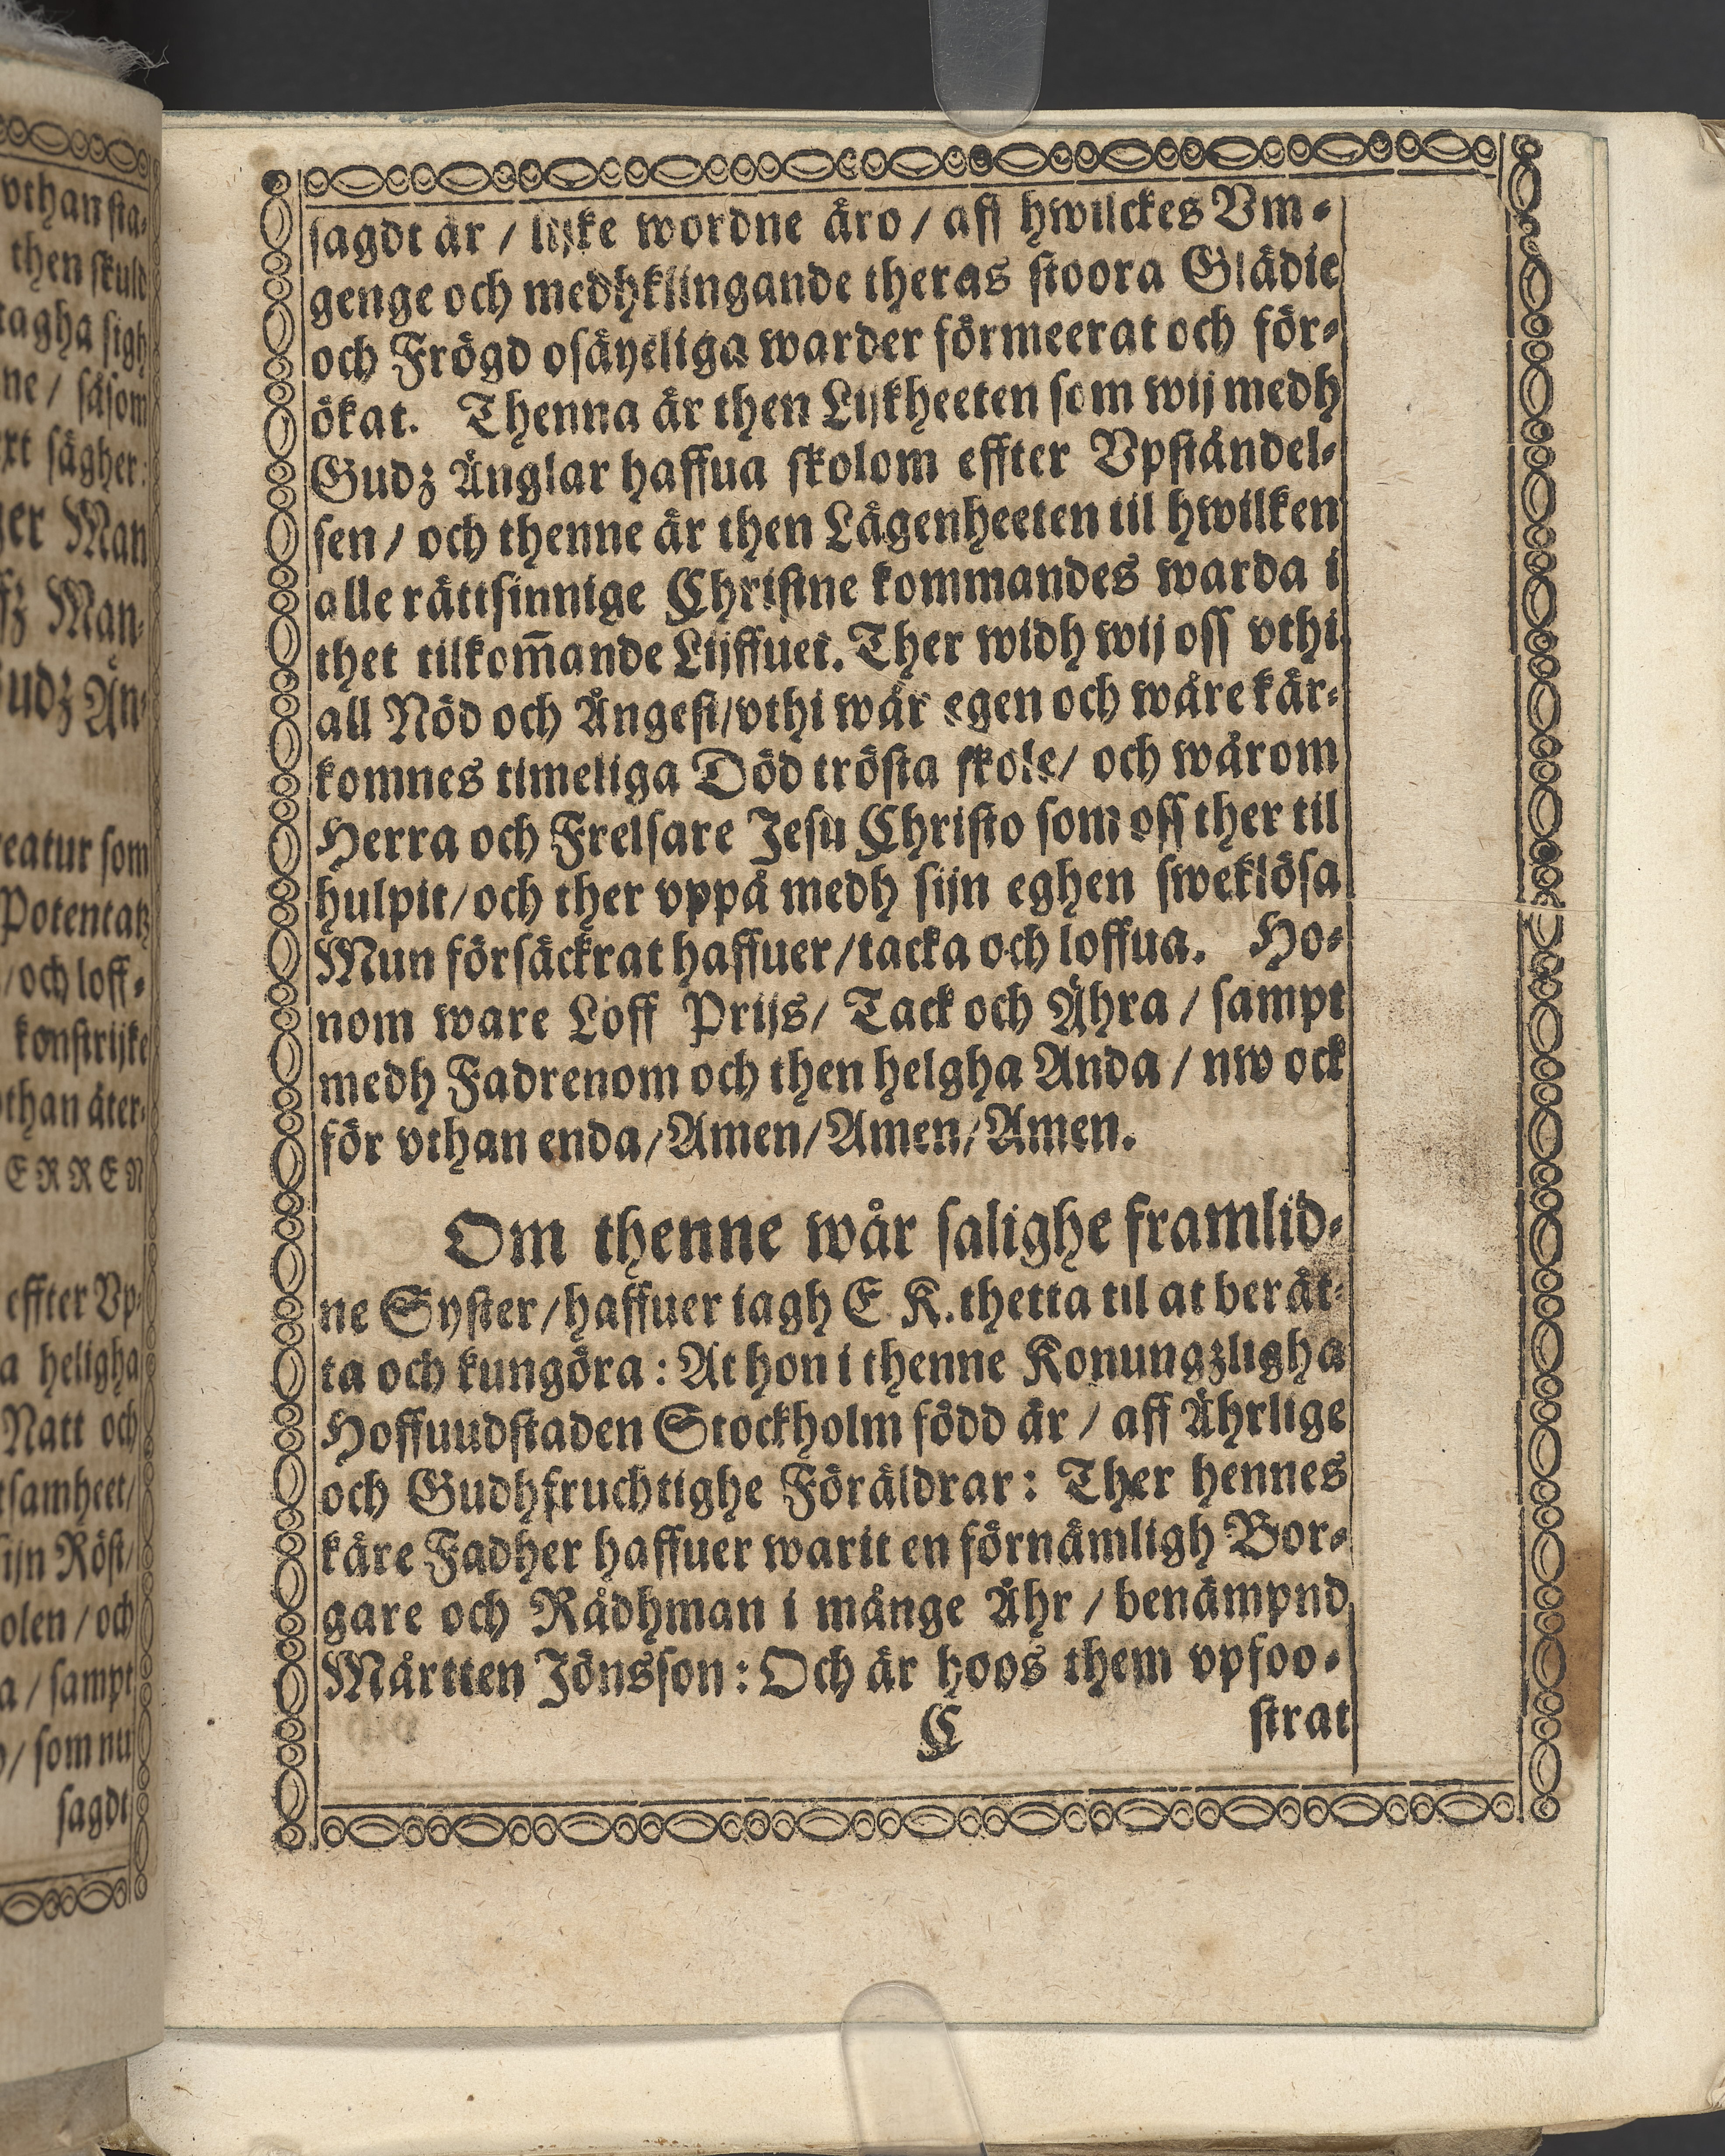 vthan sta-
then skuld
tagha sigh
ne / såsom
xt sägher:
ger Man
ffz Man-
Gudz Än-
reatur som
Potentatz
/ och loff-
konstrijke
vthan åter-
ERREN
effter Vp-
a heligha
Natt och
tsamheet/
sijn Röst/
olen / och
a / sampt
/ som nu
sagdt
sagdt är / lijke wordne äro / aff hwilckes Vm-
genge och medhklingande theras stoora Glädie
och Frögd osäyeliga warder förmeerat och för-
ökat. Thenna är then Lijkheeten som wij medh
Gudz Änglar haffua skolom effter Vpståndel-
sen / och thenne är then Lägenheeten til hwilken
alle rättsinnige Christne kommandes warda i
thet tilkom̅ande Lijffuet. Ther widh wij oss vthi
all Nöd och Ångest/vthi wår egen och wåre kär-
komnes timeliga Död trösta skole/ och wårom
Herra och Frelsare Jesu Christo som oss ther til
hulpit/och ther vppå medh sijn eghen sweklösa
Mun försäckrat haffuer/tacka och loffua. Ho-
nom ware Loff Prijs/ Tack och Ähra / sampt
medh Fadrenom och then helgha Anda / nw ock
för vthan enda/Amen/Amen/Amen.
Om thenne wår salighe framlid-
ne Syster/haffuer iagh E K. thetta til at berät-
ta och kungöra: At hon i thenne Konungzligha
Hoffuudstaden Stockholm född är / aff Ährlige
och Gudhfruchtighe Föräldrar: Ther hennes
käre Fadher haffuer warit en förnämligh Bor-
gare och Rådhman i månge Åhr / benämpnd
Mårtten Jönsson: Och är hoos them vpfoo-
C strat